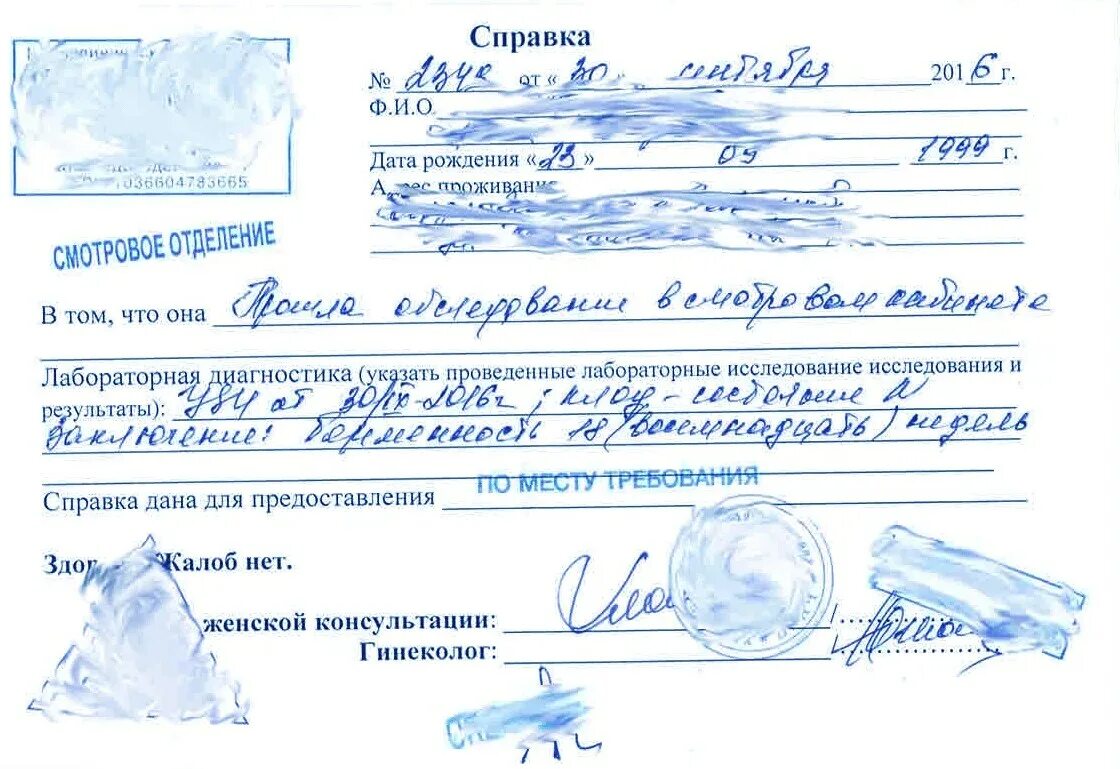 Справка
№ 2342 от «30» сентября 2016 г.
Ф.И.О.
Дата рождения «23» 09 1999 г.
036604783665
СМОТРОВОЕ ОТДЕЛЕНИЕ
В том, что она Прошла обследование в смотровом кабинете
Лабораторная диагностика (указать проведенные лабораторные исследование исследования и
результаты): УЗИ от 30/IX-2016г; плод - состояние N
Заключение: беременность 18 (восемнадцать) недель
Справка дана для предоставления ПО МЕСТУ ТРЕБОВАНИЯ
Жалоб нет.
женской консультации:
Гинеколог: